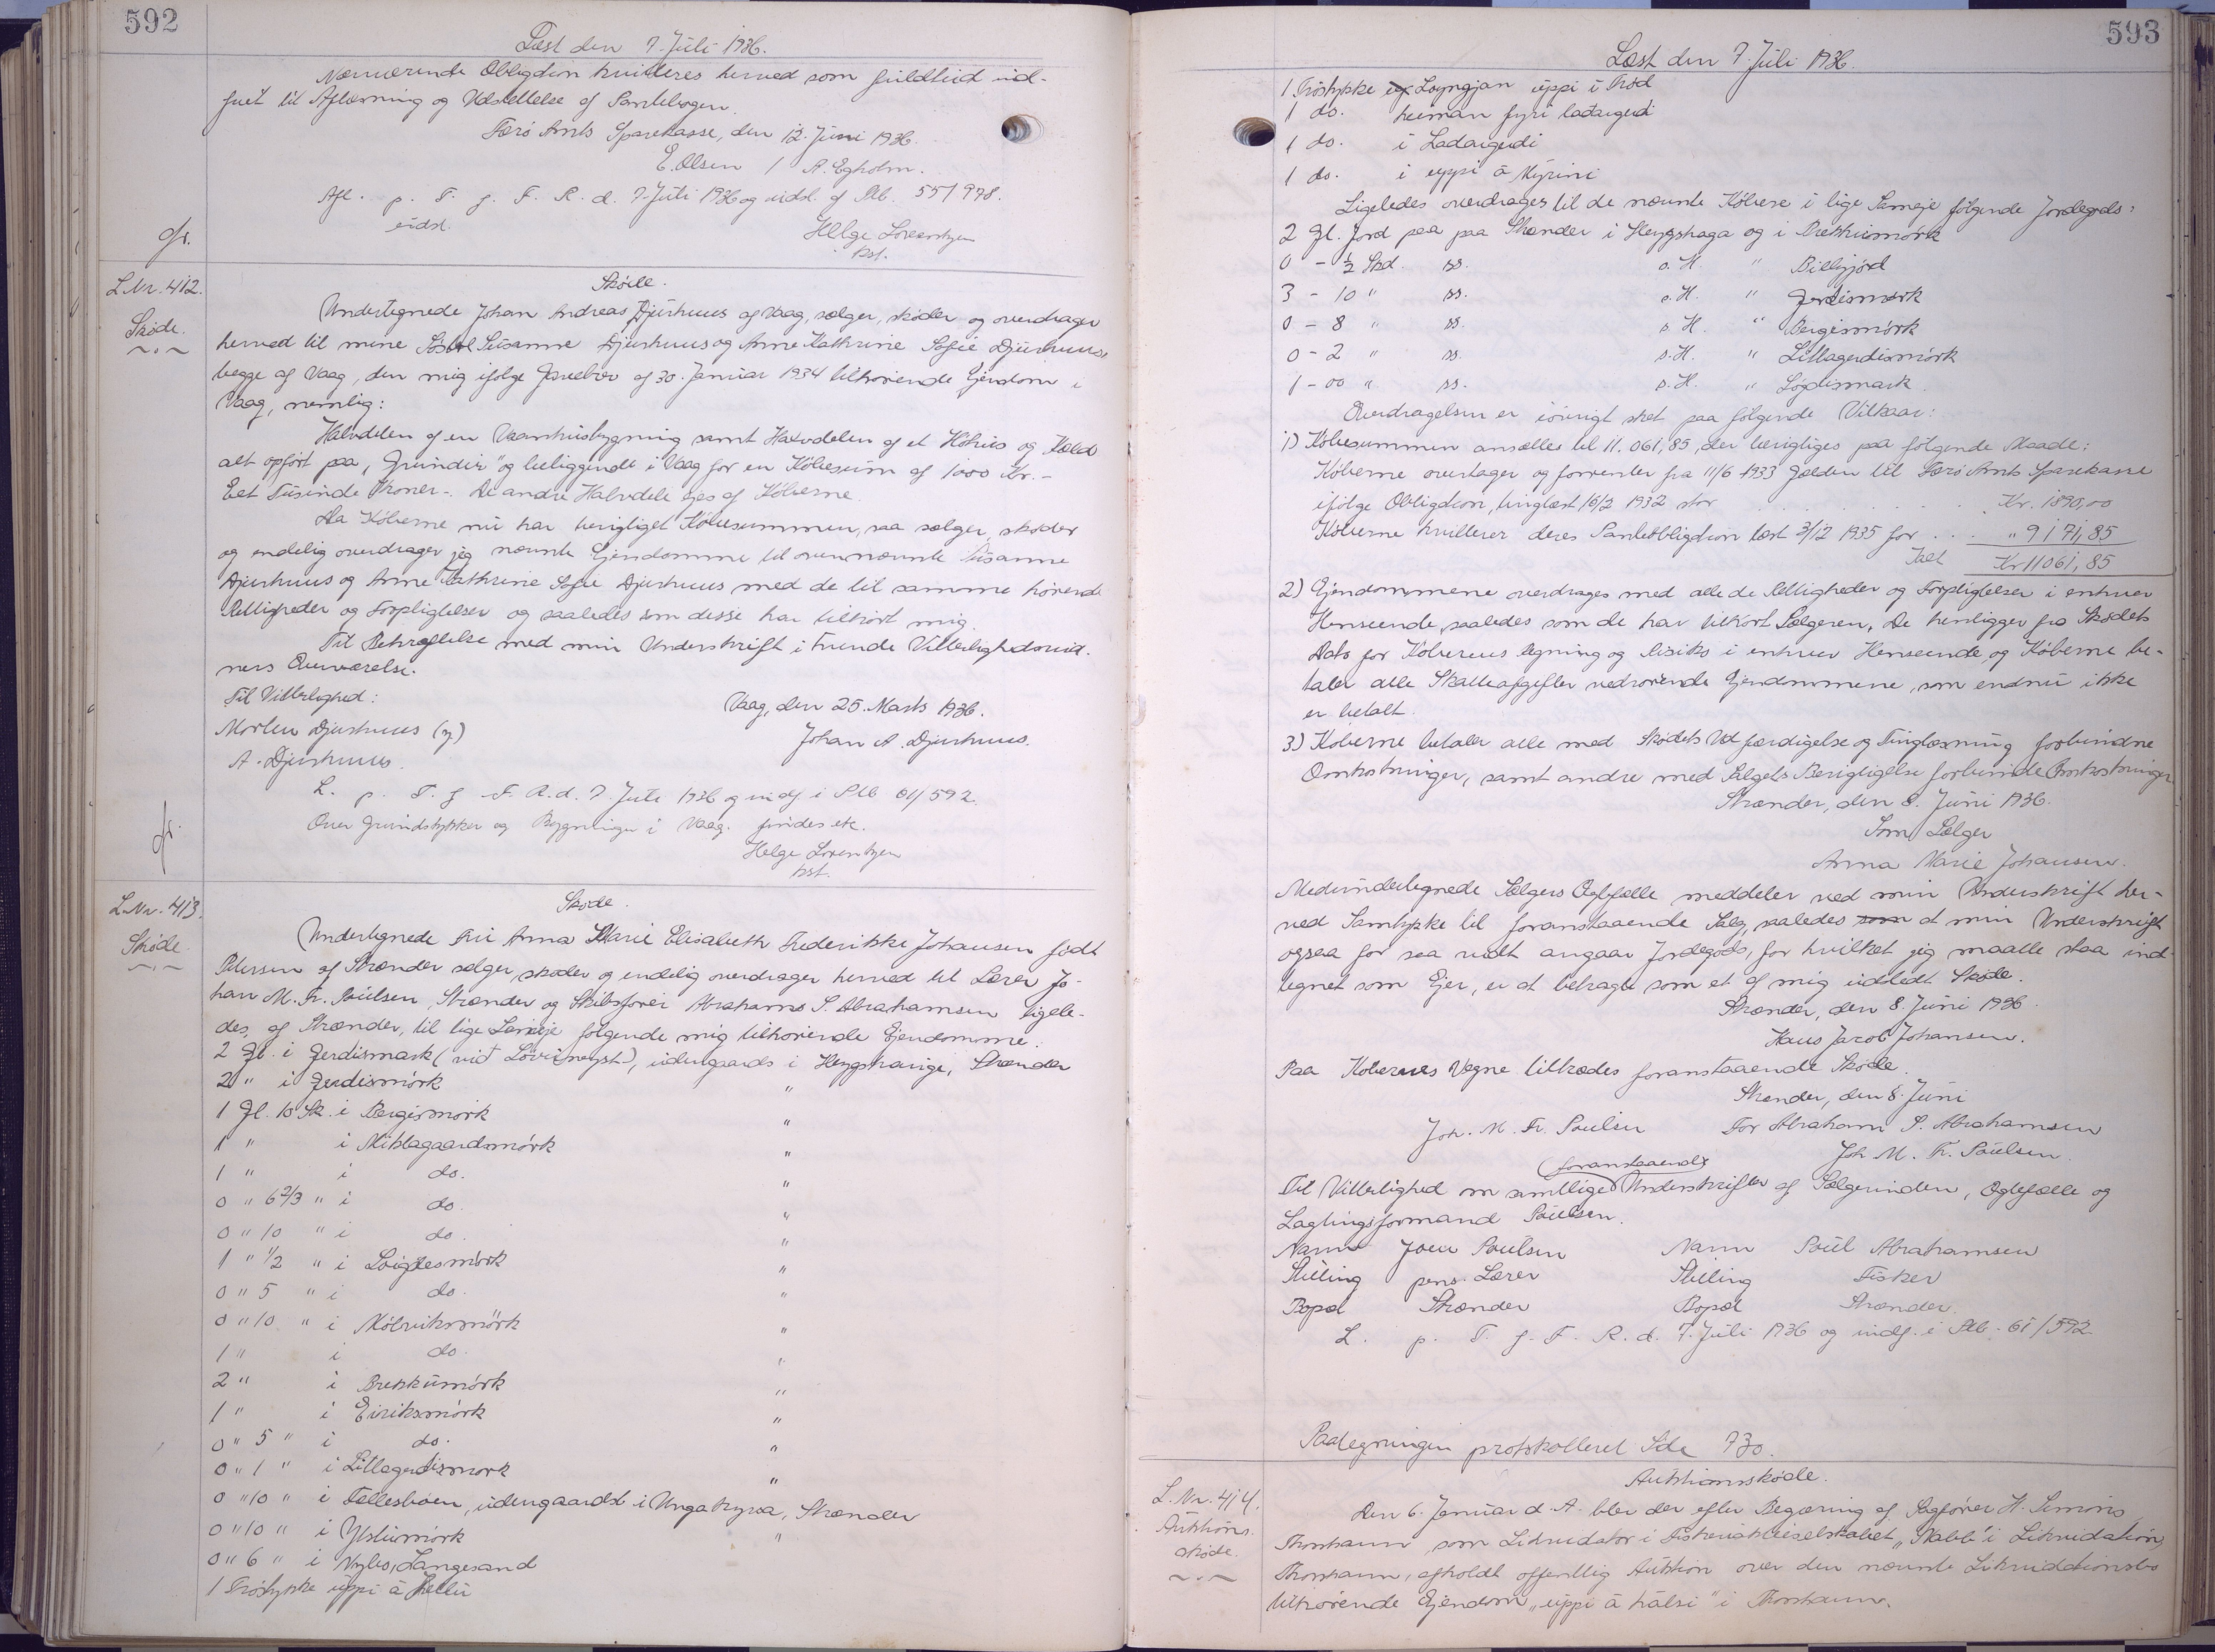 592
Læst den 7. Juli 1936.
Nærværende Obligation kvitteres herved som fuldtud ind-
friet til Aflæsning og Udslettelse af Pantebogen.
Færø Amts Sparekasse, den 12. Juni 1936.
E. Olsen / A. Egholm.
Afl. p. T. f. F. R. d. 7 Juli 1936 og udsl. af Plb. 55/978.
udsl.
Helge Lorentzen
kst.
gr.
L.Nr. 412.
Skøde.
Skøde.
Undertegnede Johan Andreas Djurhuus af Vaag, sælger, skøder og overdrager
herved til mine Søstre Susanne Djurhuus og Anne Kathrine Sofie Djurhuus
begge af Vaag, den mig ifølge Gavebrev af 30. Januar 1934 tilhørende Ejendom i
Vaag, nemlig:
Halvdelen af en Vaaningsbygning samt Halvdelen af et Høhus og Kæld
alt opført paa "Grundir" og beliggende i Vaag for en Købesum af 1000 Kr. -
Eet Tusinde Kroner -. De andre Halvdele ejes af Køberne.
Da Køberne nu har berigtiget Købesummen, saa sælger, skøder
og endelig overdrager jeg nævnte Ejendomme til ovennævnte Susanne
Djurhuus og Anne Kathrine Sofie Djurhuus med de til samme hørende
Rettigheder og Forpligtelser og saaledes som desse har tilhørt mig.
Til Bekræftelse med min Underskrift i tvende Vitterlighedsvid-
ners Overværelse.
Til Vitterlighed:
Vaag, den 25. Marts 1936.
Morten Djurhuus (?)
Johan A. Djurhuus.
A. Djurhuus.
L. p. T. f. F. R. d. 7. Juli 1936 og indf. i Plb 61/592.
Over Grundstykker og Bygninger i Vaag. findes etc.
Helge Lorentzen
kst.
gr.
L.Nr. 413.
Skøde.
Skøde.
Undertegnede Fru Anna Marie Elisabeth Frederikke Johansen født
Petersen af Skrænder sælger, skøder og endelig overdrager herved til Lærer Jo-
han M. Fr. Poulsen, Strænder og Skibsfører Abrahams P. Abrahamsen ligele-
des af Strænder, til lige Sameje følgende mig tilhørende Ejendomme:
2 Gl. i Gerdismark (við Lovisneyst), udengaards i Heygshauge, Strænder
2 " i Gerdismørk "
1 Gl. 10 Sk. i Bergismørk "
1 " i Miklagaardsmørk "
1 " i do. "
0 " 6 2/3 " i do. "
0 " 10 " i do. "
1 " 1/2 " i Loigdesmørk "
0 " 5 " i do. "
0 " 10 " i Mólriksmørk "
1 " i do. "
2 " i Brekkumørk "
1 " i Eiriksmørk "
0 " 5 " i do. "
0 " 1 " i Litlagerdismørk "
0 " 10 " i Fællesbøen, udengaards i Ungakyrsa, Strænder
0 " 10 " i Ylslumørk "
0 " 6 " i Nybø, Langesand
1 Trøstykke uppi á Hellu
593
Læst den 7. Juli 1936.
1 Trøstykke Loyngjan uppi i Trød
1 do. heiman fyri ladangerdi
1 do. i Ladangerdi
1 do. i uppi á Mýrini
Ligeledes overdrages til de nævnte Købere i lige Sameje følgende Jordegods:
2 Gl. Jord paa paa Strænder i Heygshaga og i Brekkumørk
0 - ½ Skd. ss. s. H. " Billigjörd
3 - 10 " ss. s. H. " Gerdismørk
0 - 8 " ss. s. H. " Bergismørk
0 - 2 " ss. s. H. " Litlagerdismørk
1 - 00 " ss. s. H. " Logdismark.
Overdragelsen er iøvrigt sket paa følgende Vilkaar:
1) Købesummen ansættes til 11.061,85, der berigtiges paa følgende Maade:
Køberne overtager og forrenter fra 11/6 1933 Gælden til Færø Amts Sparekasse
ifølge Obligation, tinglæst 16/2 1932 stor . . . . . . . . Kr. 1890,00
Køberne kvitterer deres Panteobligation læst 3/12 1935 for . . . " 9171,85
Ialt Kr 11061,85
2) Ejendommene overdrages med alle de Rettigheder og Forpligtelser i enhver
Henseende, saaledes som de har tilhørt Sælgeren. De henligger fra Skødets
Dato for Køberens Regning og Risiko i enhver Henseende, og Køberne be-
taler alle Skatteafgifter vedrørende Ejendommene, som endnu ikke
er betalt.
3) Køberne betaler alle med Skødets Udfærdigelse og Tinglæsning forbundne
Omkostninger, samt andre med Salgets Berigtigelse forbundne Omkostninger
Strænder, den 8. Juni 1936.
Som Sælger
Anna Marie Johansen.
Medundertegnede Sælgers Ægtefælle meddeler ved min Underskrift her-
ved Samtykke til foranstaaende Salg, saaledes som at min Underskrift
ogsaa for saa vidt angaar Jordegods, for hvilket jeg maatte staa ind-
tegnet som Ejer, er at betragte som et af mig udstedt Skøde.
Strænder, den 8. Juni 1936.
Hans Jacob Johansen.
Paa Købernes Vegne tiltrædes foranstaaende Skøde.
Strænder, den 8. Juni
Joh. M. Fr. Poulsen For Abraham P. Abrahamsen
Joh M. Fr. Poulsen.
foranstaaende
Til Vitterlighed om samtlige Underskrifter af Sælgerinden, Ægtefælle og
Lagtingsformand Poulsen.
Navn Joen Poulsen Navn Poul Abrahamsen
Stilling pens. Lærer Stilling Fisker
Bopæl Strænder Bopæl Strænder.
L. p. T. f. F. R. d. 7. Juli 1936 og indf. i Plb. 61/592.
Paategningen protokolleret Side 730.
L.Nr. 414.
Auktions-
skøde.
Auktionsskøde.
Den 6. Januar d. A. blev der efter Begæring af Sagfører H. Simonis
Thorshavn, som Likvidator i Fiskeriaktieselskabet "Nabb" i Likvidation,
Thorshavn, afholdt offentlig Auktion over den nævnte Likvidationsbo
tilhørende Ejendom "uppi á hálsi" i Thorshavn.